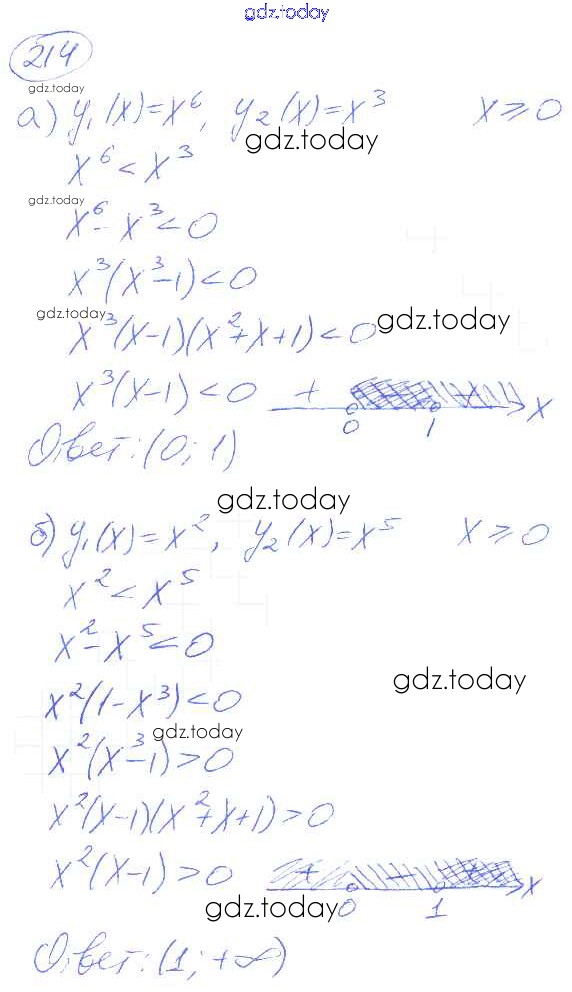 gdz.today
214
gdz.today
а) y₁(x)=x⁶, y₂(x)=x³ x≥0
gdz.today
x⁶<x³
gdz.today
x⁶-x³<0
x³(x³-1)<0
gdz.today
x³(x-1)(x²+x+1)<0 gdz.today
x³(x-1)<0 + - + x
0 1
Ответ: (0; 1)
gdz.today
б) y₁(x)=x², y₂(x)=x⁵ x≥0
x²<x⁵
x²-x⁵<0
gdz.today
x²(1-x³)<0
gdz.today
x²(x³-1)>0
x²(x-1)(x²+x+1)>0
x²(x-1)>0 + - + x
gdz.today 0 1
Ответ: (1; +∞)